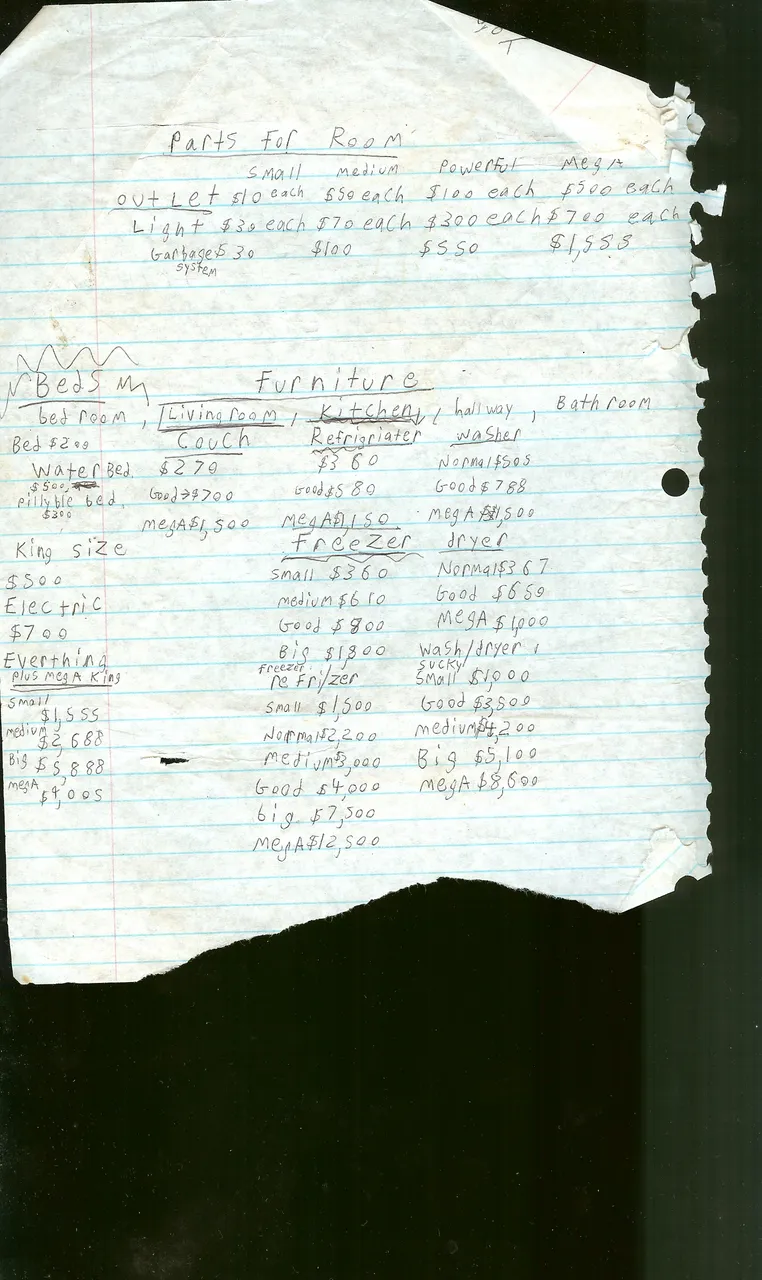 Parts For Room
Small medium Powerful MegA
outLet $10 each $50 each $100 each $500 each
Light $30 each $70 each $300 each $700 each
Garbage $30 $100 $550 $1,555
system
Beds Furniture
bedroom, Livingroom, Kitchen, hallway, Bathroom
Bed $200 Couch Refrigriater washer
Water Bed, $270 $360 Normal $505
$500,
pillyble bed, Good → $700 Good $580 Good $788
$300
megA $1,500 megA $1,150 megA $1,500
King size Freezer dryer
$500 small $360 Normal $367
Electric medium $610 Good $650
$700 Good $800 MegA $1,000
Everthing Big $1,800 wash/dryer,
plus megA King freezer sucky
reFri/zer small $1,000
small
$1,555 small $1,500 Good $3,500
medium
$2,688 Normal $2,200 medium $4,200
Big $5,888 medium $3,000 Big $5,100
megA
$9,005 Good $4,000 megA $8,600
big $7,500
MegA $12,500